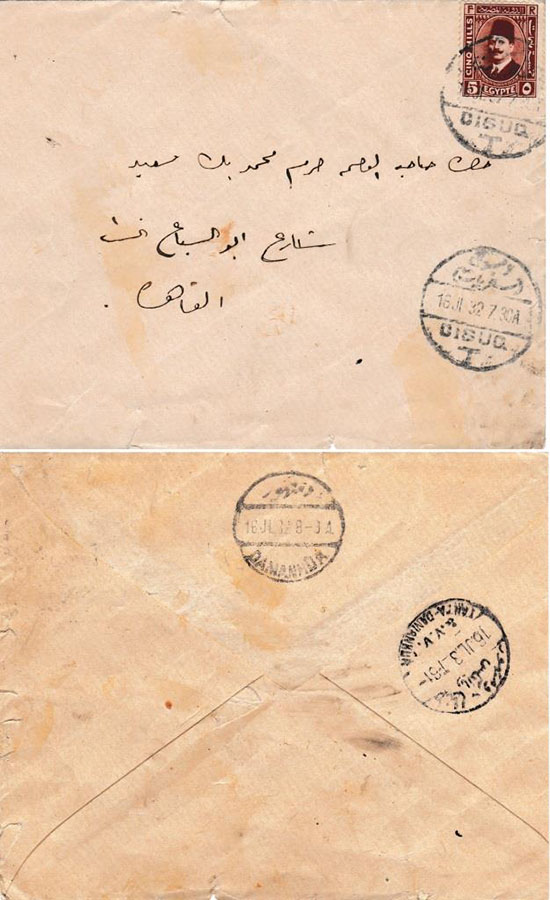 F R
CINQ MILLS
5 EGYPTE ٥
DISUQ
T
حضرة صاحبة العصمة حرم محمد بك سعيد
شارع ابو السباع
القاهرة
16 JL 32 7 30A
DISUQ
T
دمنهور
16 JL 32 8- A
DAMANHUR
TANTA-DAMANHUR
& V.V.
16 JL 3